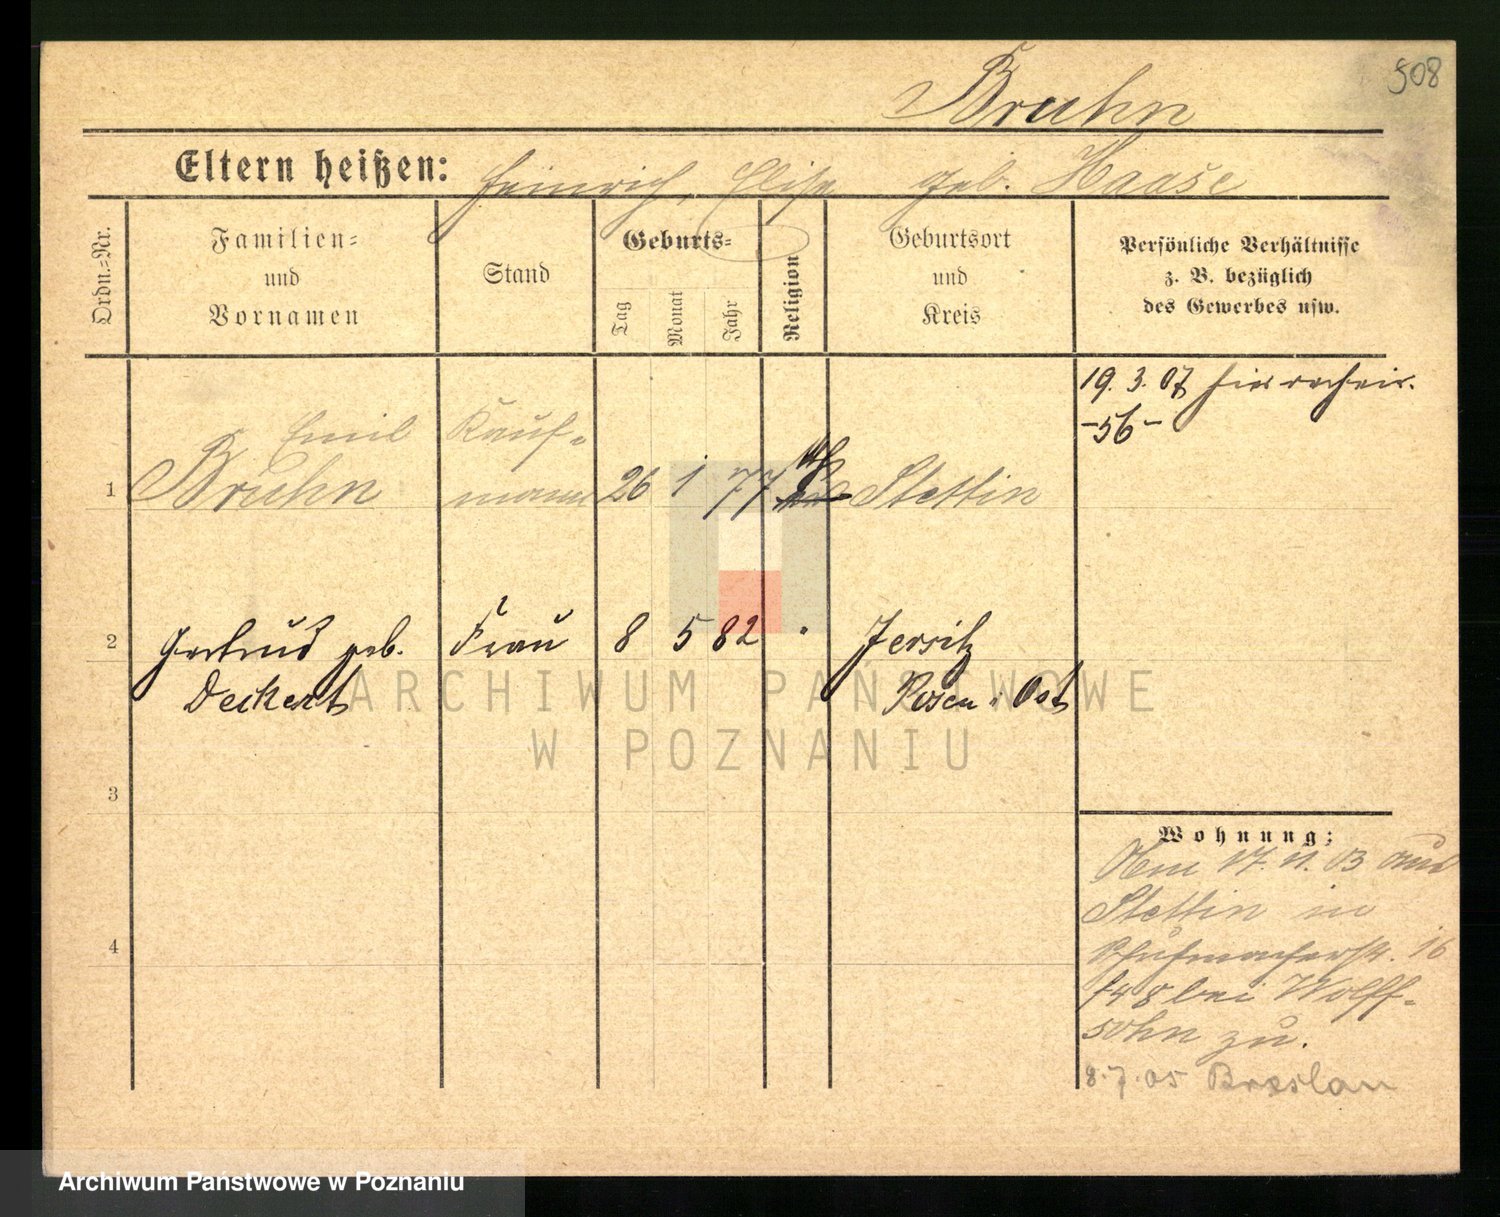 508
Bruhn
Eltern heißen: Heinrich, Elise geb. Haase
Ordn.=Nr.
Familien=
und
Vornamen
Stand
Geburts=
Tag
Monat
Jahr
Religion
Geburtsort
und
Kreis
Persönliche Verhältnisse
z. B. bezüglich
des Gewerbes usw.
19. 3. 07
-56-
Emil Kauf-
1 Bruhn mann 26 1 77 Stettin
2 Gertrud geb. Frau 8 5 82 " Jersitz
Deckert Posen Ost
3
4
Wohnung:
17. 11. 03 aus
Stettin in
Schuhmacherstr. 16
bei Wolff-
sohn zu.
8.7.05 Breslau
ARCHIWUM PAŃSTWOWE
W POZNANIU
Archiwum Państwowe w Poznaniu